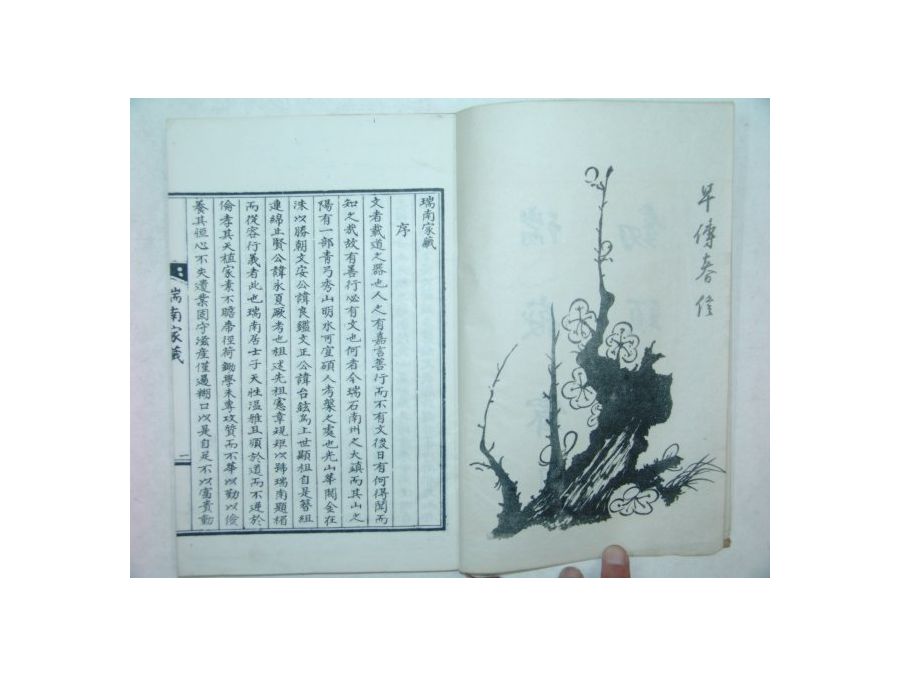 早傳春信
瑞南家藏
序
文者載道之器也人之有嘉言善行而不有文後日有何得聞而
知之哉故有善行必有文也何者今瑞石南州之大鎮而其山之
陽有一部青乃秀山明水可宜碩人考槃之處也光山華閥金在
洙以勝朝文安公諱良鑑文正公諱台鉉爲上世顯祖自是簪組
連綿止賢公諱永夏厥考也祖述先祖憲章規矩以號瑞南題楣
而從容行義者此也瑞南居士子天性溫雅且煩於道而不遷於
倫孝其天植家素不贍帶徑荷鋤學未專攻質而不華以勤以儉
養其恒心不失遺業固守滋產僅過糊口以是自足不以富貴動
瑞南家藏
一